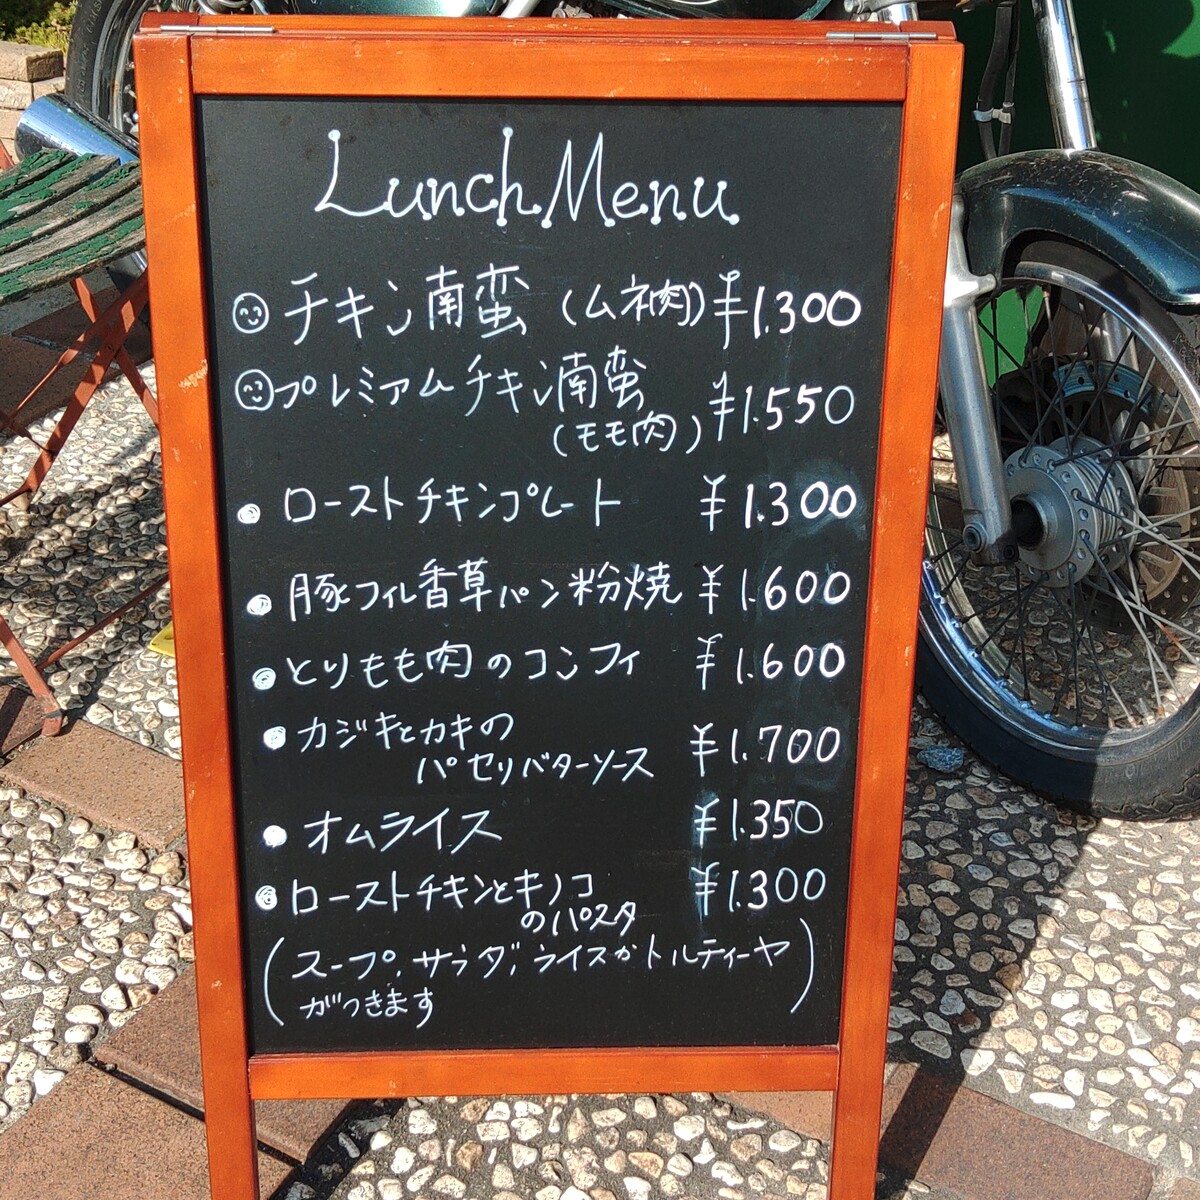 Lunch Menu
チキン南蛮 (ムネ肉) ¥1.300
プレミアムチキン南蛮 ¥1.550
(もも肉)
● ローストチキンプレート ¥1.300
● 豚フィレ香草パン粉焼 ¥1.600
● とりもも肉のコンフィ ¥1.600
● カジキとカキの ¥1.700
パセリバターソース
● オムライス ¥1.350
● ローストチキンとキノコ ¥1.300
のパスタ
(スープ、サラダ、ライスかトルティーヤ
がつきます)